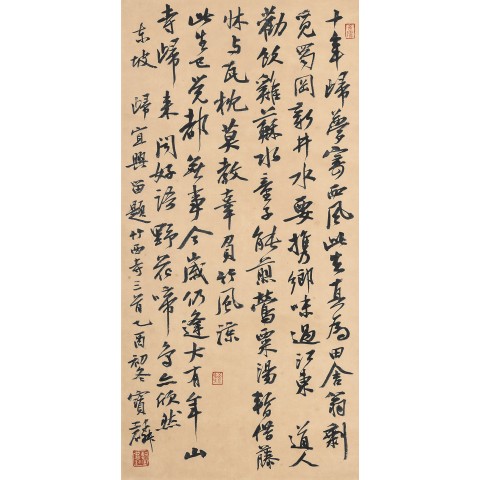 十年歸夢寄西風此去真為田舍翁剩
覓蜀岡新井水要攜鄉味過江東 道人
勸飲雞蘇水童子能煎鶯粟湯暫借藤
牀与瓦枕莫教辜負竹風涼
此生已觉都無事今歲仍逢大有年山
寺歸来聞好語野花啼鳥亦欣然
东坡 歸宜興留題竹西寺三首乙酉初冬寶麟